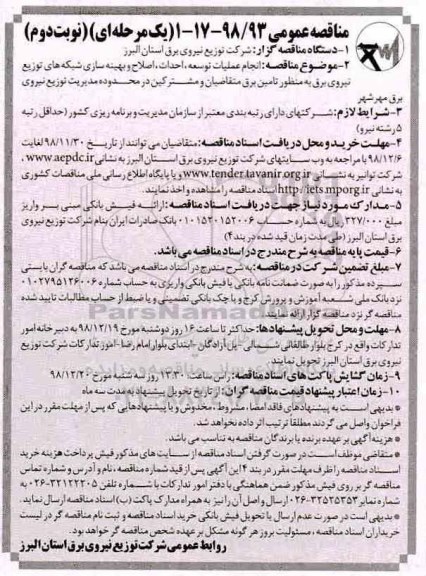 مناقصه عمومی ۹۸/۹۳-۱۷-۱(یک مرحله‌ای)(نوبت دوم)
۱-دستگاه مناقصه گزار: شرکت توزیع نیروی برق استان البرز
۲-موضوع مناقصه: انجام عملیات توسعه، احداث، اصلاح و بهینه سازی شبکه های توزیع
نیروی برق به منظور تامین برق متقاضیان و مشترکین در محدوده مدیریت توزیع
برق مهرشهر
۳-شرایط لازم: شرکتهای دارای رتبه بندی معتبر از سازمان مدیریت و برنامه ریزی کشور (حداقل رتبه
۵ رشته نیرو)
۴-مهلت خرید و محل دریافت اسناد مناقصه: متقاضیان می توانند از تاریخ ۹۸/۱۱/۳۰ لغایت
۹۸/۱۲/۶ با مراجعه به وب سایتهای شرکت توزیع نیروی برق استان البرز به نشانی www.aepdc.ir،
شرکت توانیر به نشانی www.tender.tavanir.org.ir و یا پایگاه اطلاع رسانی ملی مناقصات کشوری
به نشانی http://iets.mporg.ir اسناد مناقصه را مشاهده و اخذ نمایند.
۵-مدارک مورد نیاز جهت دریافت اسناد مناقصه: ارائه فیش بانکی مبنی بر واریز
مبلغ ۳۲۷/۰۰۰ ریال به شماره حساب ۰۱۰۱۵۲۰۱۵۲۰۰۶ بانک صادرات ایران بنام شرکت توزیع نیروی
برق استان البرز (طی مدت زمان قید شده در بند۴)
۶-قیمت پایه مناقصه به شرح مندرج در اسناد مناقصه می باشد.
۷-مبلغ تضمین شرکت در مناقصه: به شرح مندرج در اسناد مناقصه می باشد که مناقصه گران بایستی
سپرده مذکور را به صورت ضمانت نامه بانکی یا فیش بانکی واریزی به حساب شماره ۰۱۰۲۷۹۵۱۲۶۰۰۶
نزد بانک ملی شعبه آموزش و پرورش کرج و یا چک بانکی تضمینی و یا ضبط از حساب مطالبات تایید شده
مناقصه گر نزد مناقصه گزار ارائه نمایند.
۸-مهلت و محل تحویل پیشنهادها: حداکثر تا ساعت ۱۶ روز دوشنبه مورخ ۹۸/۱۲/۱۹ به دبیرخانه امور
تدارکات واقع در کرج-بلوار طالقانی شمالی-پل آزادگان-ابتدای بلوار امام رضا-امور تدارکات شرکت توزیع
نیروی برق استان البرز تحویل نمایند.
۹-زمان گشایش پاکت های اسناد مناقصه: راس ساعت ۱۳:۳۰ روز سه شنبه مورخ ۹۸/۱۲/۲۰
۱۰-زمان اعتبار پیشنهاد قیمت مناقصه گران: از تاریخ تحویل پیشنهاد به مدت سه ماه
* بدیهی است به پیشنهادهای فاقد امضا، مشروط، مخدوش و یا پیشنهادهایی که پس از مهلت مقرر در این
فراخوان واصل می گردند مطلقا ترتیب اثر داده نخواهد شد.
* هزینه آگهی بر عهده برنده یا برندگان مناقصه به تناسب می باشد.
* متقاضی موظف است در صورت گرفتن اسناد مناقصه از سایت های مذکور فیش پرداخت هزینه خرید
اسناد مناقصه را ظرف مهلت مقرر در بند ۴ این آگهی پس از قید شماره مناقصه، نام و آدرس و شماره تماس
مناقصه گر بر روی فیش مذکور ضمن هماهنگی با دفتر امور تدارکات با شماره تلفن ۳۲۱۲۲۲۰۵-۰۲۶
به شماره نمابر ۳۲۵۲۵۳۵۳-۰۲۶ ارسال و اصل آن را نیز به همراه مدارک پاکت (ب) اسناد مناقصه ارسال نماید.
* بدیهی است در صورت عدم ارسال یا تحویل فیش بانکی خرید اسناد مناقصه و ثبت نام مناقصه گر در لیست
خریداران اسناد مناقصه، مسئولیت بروز هر گونه مشکل بر عهده شخص مناقصه گر خواهد بود.
روابط عمومی شرکت توزیع نیروی برق استان البرز